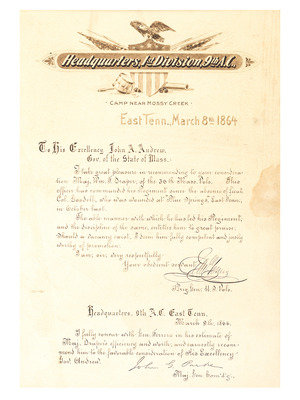 Headquarters, 1st Division, 9th A.C.
CAMP NEAR MOSSY CREEK
East Tenn., March 8th 1864
To His Excellency, John A. Andrew,
Gov. of the State of Mass.
I take great pleasure in recommending to your consideration
Maj. Wm. F. Draper, of the 36th Mass. Vols. This
officer has commanded his Regiment since the absence of Lieut.
Col. Goodell, who was wounded at Blue Springs, East Tenn.,
in October last.
The able manner with which he has led his Regiment,
and the discipline of the same, entitles him to great praise.
Should a vacancy exist, I deem him fully competent and justly
worthy of promotion.
I am, sir, very respectfully,
Your obedient servant,
Brig. Gen. U.S. Vols.
Headquarters, 9th A.C. East Tenn.
March 9th, 1864.
I fully concur with Gen. Ferrero in his estimate of
Maj. Draper's efficiency and worth, and earnestly recommend
him to the favorable consideration of His Excellency
Gov. Andrew.
John G. Parke
Maj. Gen. Com'd'g.